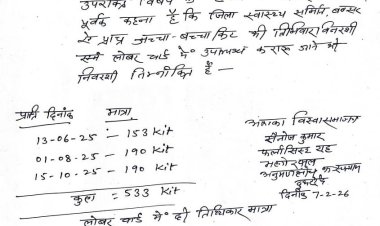 उपरोक्त विषय
पूर्वक कहना है कि जिला स्वास्थ्य समिति बक्सर
से प्राप्त जच्चा-बच्चा किट की तिथिवार विवरणी
एवं लेबर वार्ड में उपलब्ध कराए जाने की
विवरणी निम्नांकित है —
प्राप्ति दिनांक मात्रा
13-06-25 :- 153 Kit
01-08-25 - 190 Kit
15-10-25 - 190 Kit
कुल = 533 Kit
विश्वासभाजन
कुमार
फार्मासिस्ट सह
अनुमण्डलीय अस्पताल
दिनांक 7-2-26
लेबर वार्ड में दी तिथिवार मात्रा